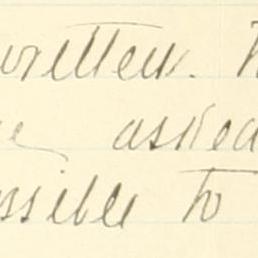 written.
asked
ssible to